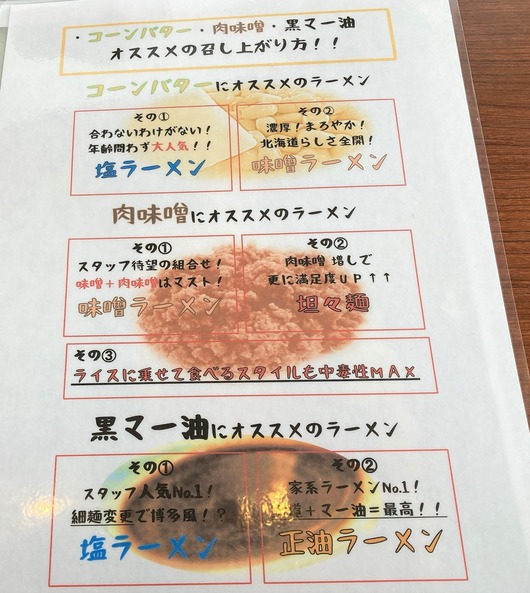 ・コーンバター・肉味噌・黒マー油
オススメの召し上がり方！！
コーンバターにオススメのラーメン
その①
合わないわけがない！
年齢問わず大人気！！
塩ラーメン
その②
濃厚！まろやか！
北海道らしさ全開！
味噌ラーメン
肉味噌にオススメのラーメン
その①
スタッフ待望の組合せ！
味噌＋肉味噌はマスト！
味噌ラーメン
その②
肉味噌 増しで
更に満足度ＵＰ↑↑
坦々麺
その③
ライスに乗せて食べるスタイルも中毒性ＭＡＸ
黒マー油にオススメのラーメン
その①
スタッフ人気No.1！
細麺変更で博多風！？
塩ラーメン
その②
家系ラーメンNo.1！
＋マー油＝最高！！
正油ラーメン